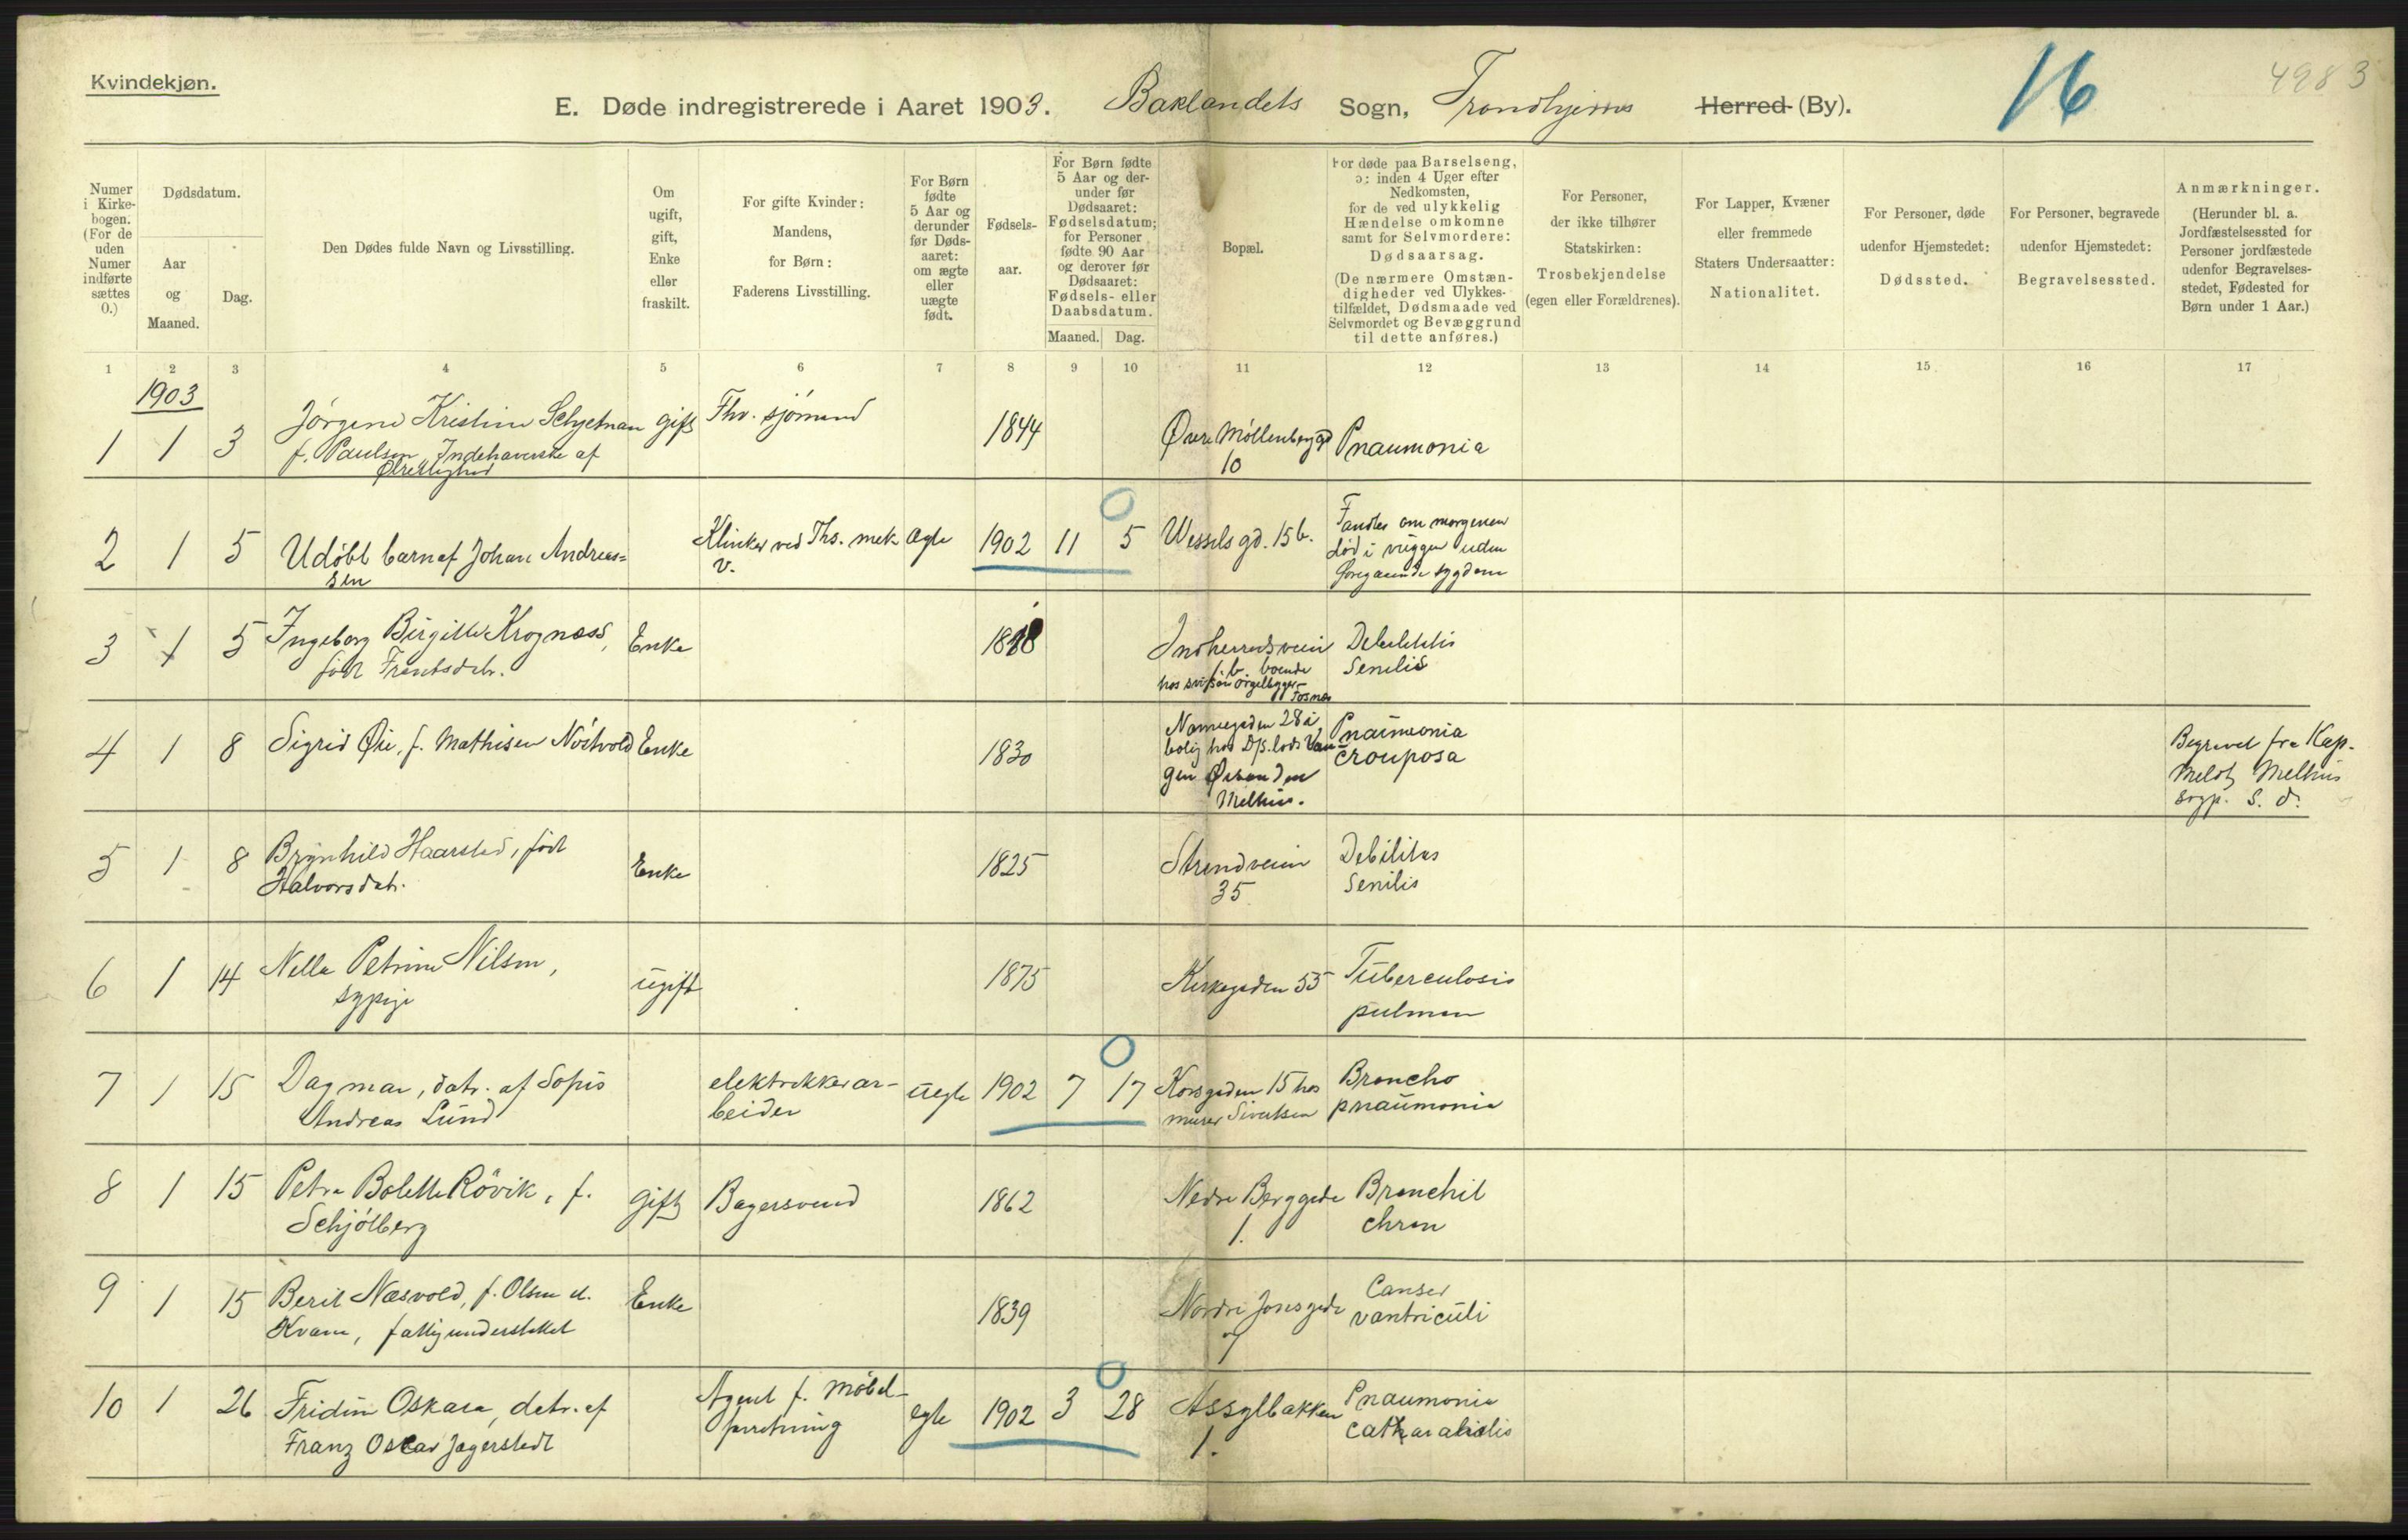 Kvindekjøn.
E. Døde indregistrerede i Aaret 1903. Baklandets Sogn, Trondhjems Herred (By).
16
4983
Numer i Kirkebogen. (For de uden Numer indførte sættes 0.)
Dødsdatum.
Aar og Maaned.
Dag.
Den Dødes fulde Navn og Livsstilling.
Om ugift, gift, Enke eller fraskilt.
For gifte Kvinder: Mandens, for Børn: Faderens Livsstilling.
For Børn fødte 5 Aar og derunder før Døds-aaret: om ægte eller uægte født.
Fødsels-aar.
For Børn fødte 5 Aar og der-under før Dødsaaret: Fødselsdatum; for Personer fødte 90 Aar og derover før Dødsaaret: Fødsels- eller Daabsdatum.
Maaned. Dag.
Bopæl.
For døde paa Barselseng, ɔ: inden 4 Uger efter Nedkomsten, for de ved ulykkelig Hændelse omkomne samt for Selvmordere: Dødsaarsag. (De nærmere Omstæn-digheder ved Ulykkes-tilfældet, Dødsmaade ved Selvmordet og Bevæggrund til dette anføres.)
For Personer, der ikke tilhører Statskirken: Trosbekjendelse (egen eller Forældrenes).
For Lapper, Kvæner eller fremmede Staters Undersaatter: Nationalitet.
For Personer, døde udenfor Hjemstedet: Dødssted.
For Personer, begravede udenfor Hjemstedet: Begravelsessted.
Anmærkninger. (Herunder bl. a. Jordfæstelsessted for Personer jordfæstede udenfor Begravelses-stedet, Fødested for Børn under 1 Aar.)
1 2 3 4 5 6 7 8 9 10 11 12 13 14 15 16 17
1903
1 1 3 Jørgine Kristine Schjetnan gift Fhv. sjömand 1844 Øvre Möllenberggd Pnaumonia
f. Paulsen Indehaverske af 10
Ølrettighed
2 1 5 Udöbt barn af Johan Andreas= Klinker ved Ths. mek ægte 1902 11 5 Wessels gd. 15 b. Fandtes om morgenen
sen v. död i vuggen uden
foregaaende sygdom
3 1 5 Ingeborg Birgitte Krognæss, Enke 1818 Indherredsveien Debilitis
född Frantsdatr. 1 b. boende Senilis
hos svigsön orgelbygger Fosnæs
4 1 8 Sigrid Øie, f. Mathisen Nöstvold Enke 1830 28 i Pnaumonia
bolig hos D/s. lods crouposa
Melhus.
Begravet fra Kap.
Melhus
sogp. S. d.
5 1 8 Brynhild Haarstad, född Enke 1825 Strandveien Debilitas
Halvorsdatr. 35 Senilis
6 1 14 Nella Petrine Nilsen, ugift 1875 Kirkegaden 55 Tuberculosis
sypige pulmon
7 1 15 Dagmar, datr. af Sofus elektrikkerar- uegte 1902 7 17 Korsgaden 15 hos Broncho
Andreas Lund beider murer Sivertsen pnaumonia
8 1 15 Petra Bolette Rövik, f. gift Bagersvend 1862 Nedre Berggade Bronchit
Schjölberg 1. chron
9 1 15 Berit Næsvold, f. Olsen d. Enke 1839 Nordre Jonsgade Canser
Kvam, fattigunderstöttet 7 vantriculi
10 1 26 Fridiu Oskara, datr. af Agent f. Möbel- egte 1902 3 28 Assylbakken Pnaumonia
Franz Oscar Jagerstedt forretning 1. catharalis